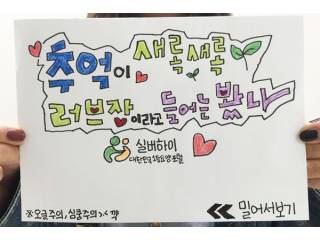 추억이 새록새록
러브장이라고 들어는 봤나
실버하이
대한민국 노인요양포털
※오글주의, 심쿵주의
밀어서보기